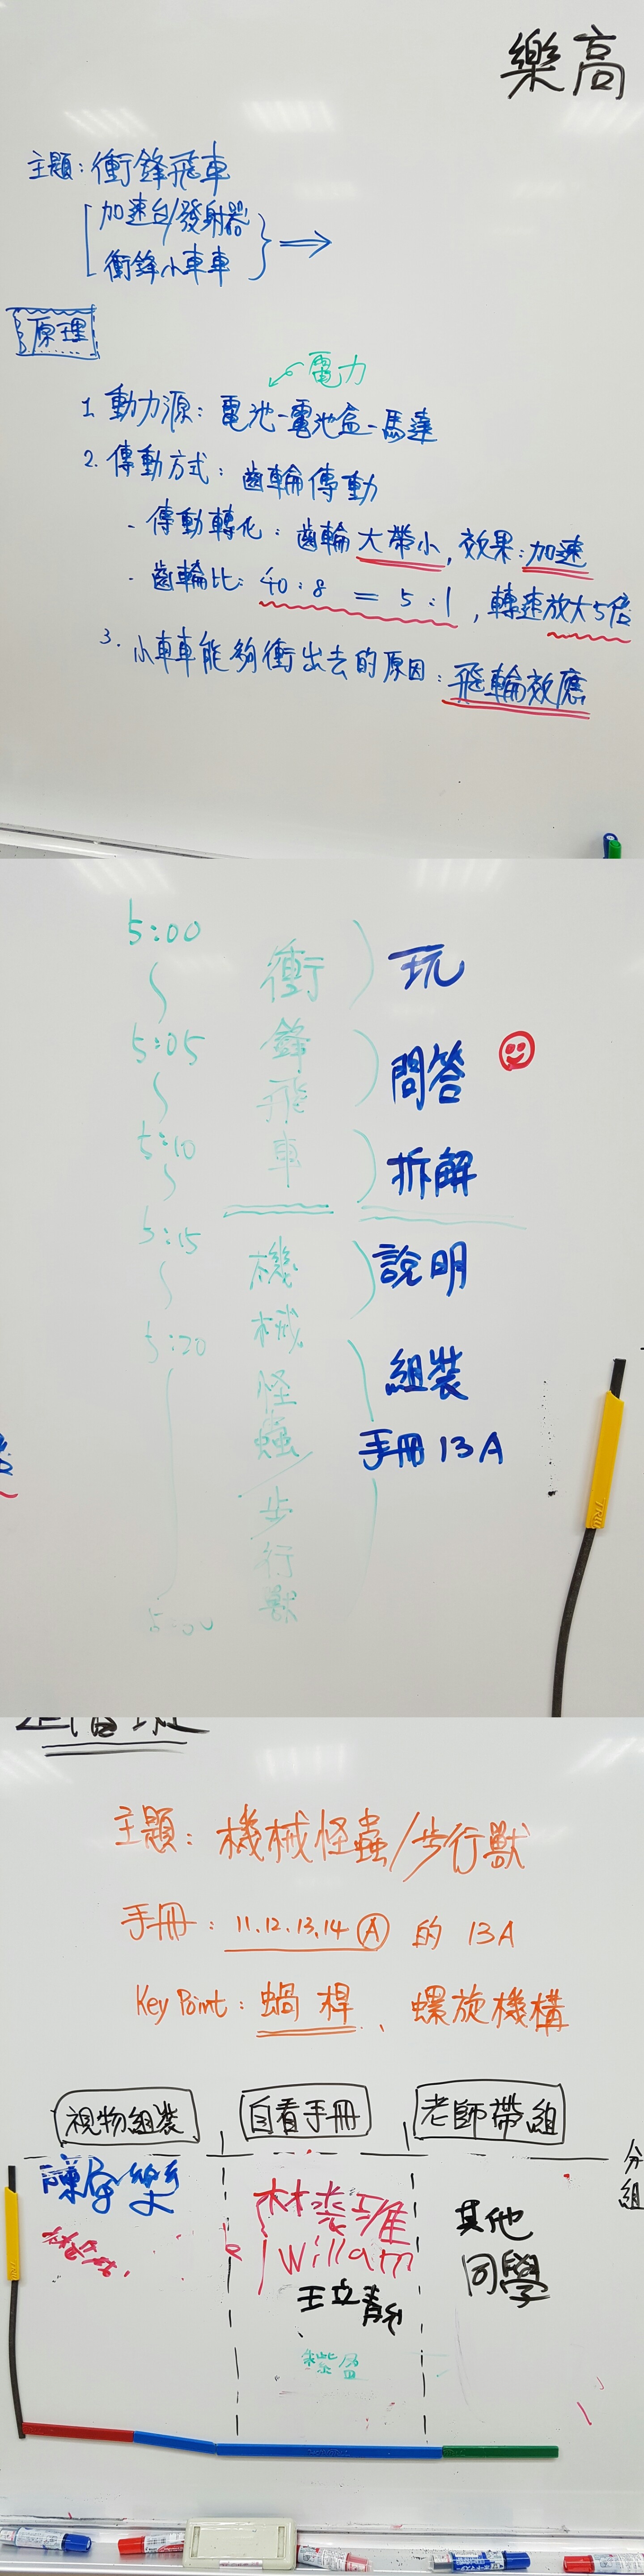 樂高
主題：衝鋒飛車
加速台/發射器
衝鋒小車車
原理
電力
1. 動力源：電池-電池盒-馬達
2. 傳動方式：齒輪傳動
- 傳動轉化：齒輪大帶小，效果：加速
- 齒輪比：40:8 = 5:1，轉速放大5倍
3. 小車車能夠衝出去的原因：飛輪效應
5:00
5:05
5:10
5:15
5:20
衝鋒飛車
機械怪蟲/步行獸
玩
問答
拆解
說明
組裝
手冊 13A
主題：機械怪蟲/步行獸
手冊：11.12.13.14 Ⓐ 的 13A
Key Point：蝸桿、螺旋機構
視物組裝
自看手冊
老師帶組
分組
Willam
其他
同學